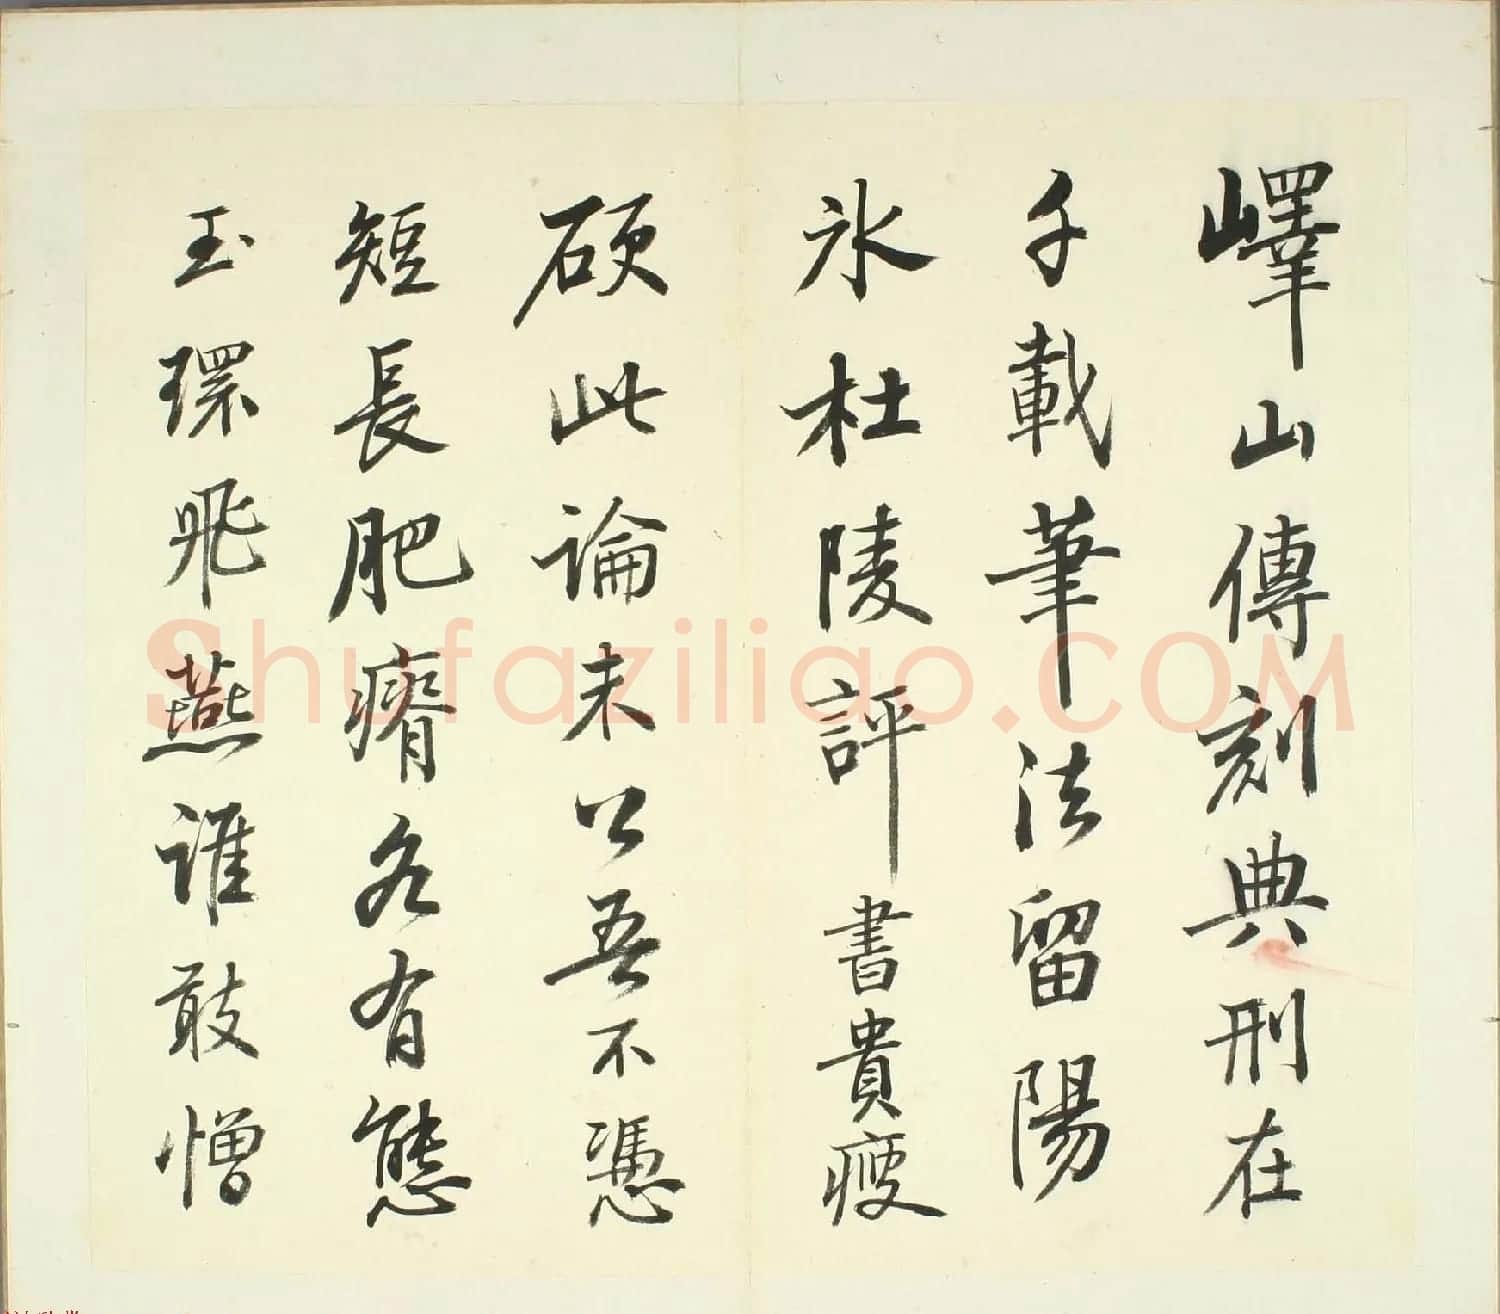 嶧山傳刻典刑在
千載筆法留陽
冰杜陵評書貴瘦
硬此論未公吾不憑
短長肥瘠各有態
玉環飛燕誰敢憎
Shufaziliao.COM